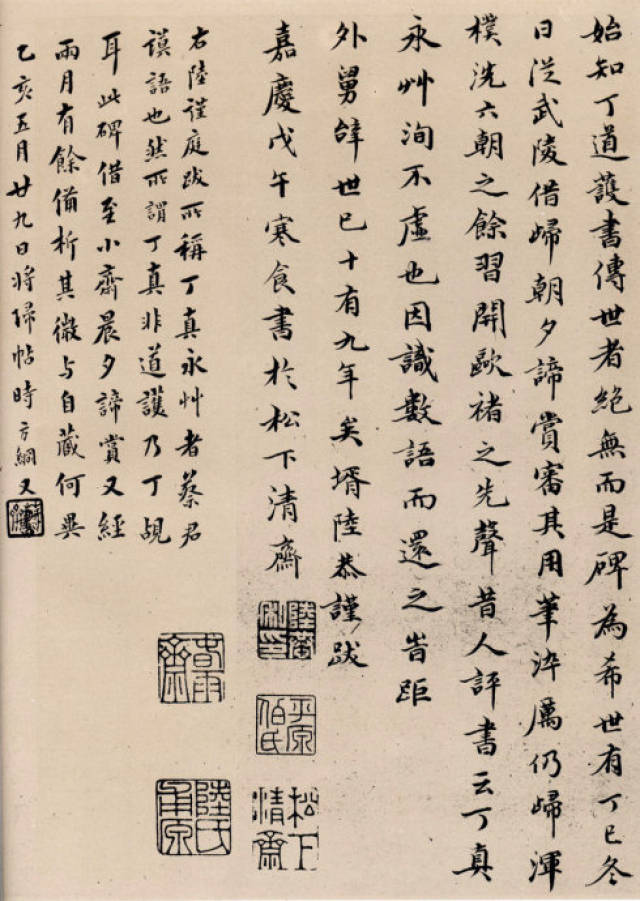 始知丁道護書傳世者絕無而是碑為希世有丁巳冬
日從武陵借歸朝夕諦賞審其用筆淬厲仍歸渾
樸洗六朝之餘習開歐褚之先聲昔人評書云丁真
永艸洵不虛也因識數語而還之旹距
外舅辭世已十有九年矣壻陸恭謹跋
嘉慶戊午寒食書於松下清齋
平原伯氏
松下清齋
右陸謹庭跋所稱丁真永艸者蔡君
謨語也然所謂丁真非道護乃丁覘
耳此碑借至小齋晨夕諦賞又經
兩月有餘備析其微与自藏何異
乙亥五月廿九日將歸帖時方綱又